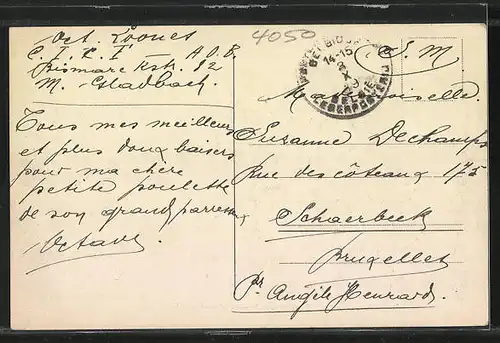 Oct. Loonet
C. I. R. I — A.O.B.
Bismarckstr. 12
M. Gladbach
Tous mes meilleurs
et plus doux baisers
pour ma chère
petite poulette
de son grand
Octave
4050
14-15
X
BELGIE
LEGERPOSTERIJ
S. M
Mademoiselle
Suzanne Dechamps
Rue des côteaux 175
Schaerbeek
Bruxelles
Pr Angèle Henrard.